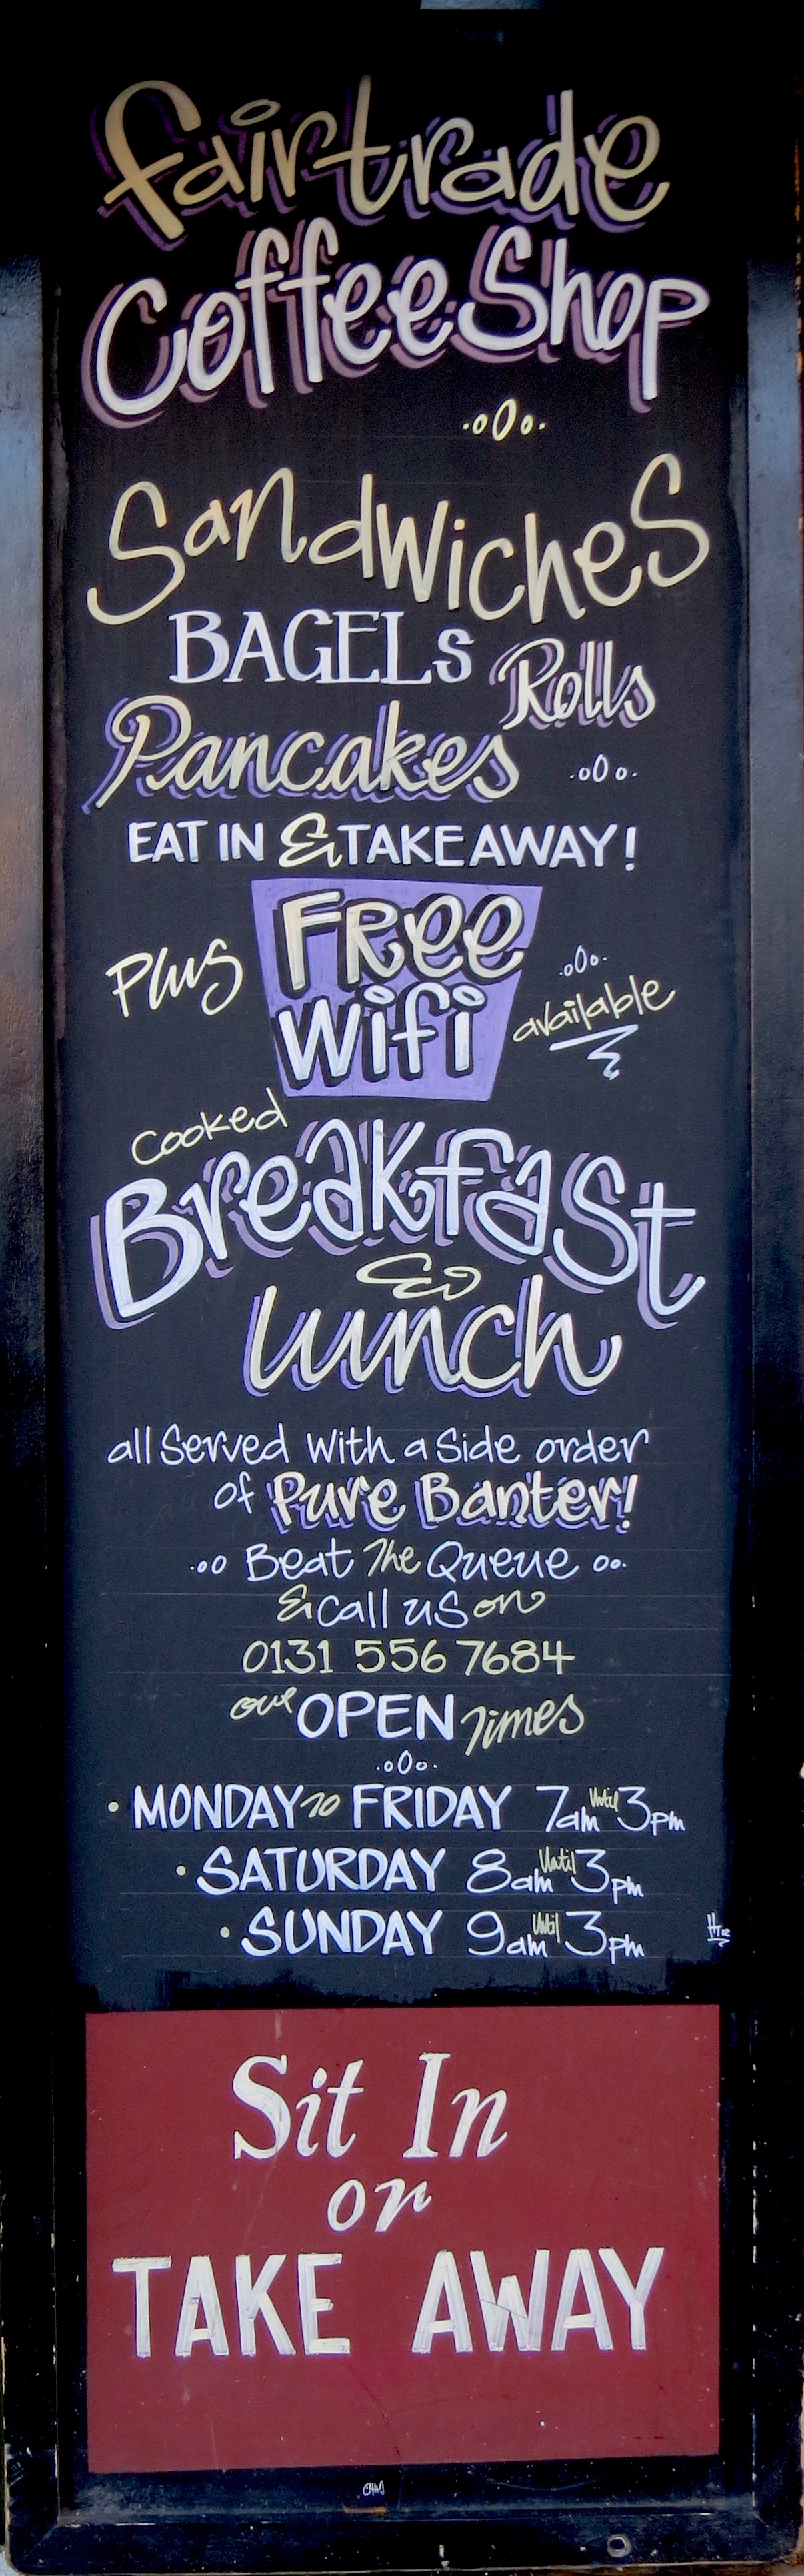 fairtrade
Coffee Shop
Sandwiches
BAGELS Rolls
Pancakes
EAT IN & TAKEAWAY!
Plus FREE Wifi available
Cooked
Breakfast
&
lunch
all Served with a side order
of Pure Banter!
Beat The Queue
& call us on
0131 556 7684
our OPEN Times
• MONDAY to FRIDAY 7am until 3pm
• SATURDAY 8am until 3pm
• SUNDAY 9am until 3pm
Sit In
or
TAKE AWAY